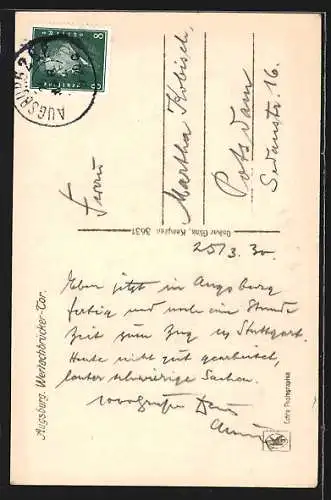 Augsburg. Wertachbrucker-Tor.
25/3. 30.
Eben jetzt in Augsburg
fertig und noch eine Stunde
Zeit zum Zug n. Stuttgart.
Heute nicht gut gearbeitet,
lauter schwierige Sachen.
Frau
Martha Kobisch,
Potsdam
Sedanstr. 16.
3631
Echte Photographie
AUGSBURG 2
8
8